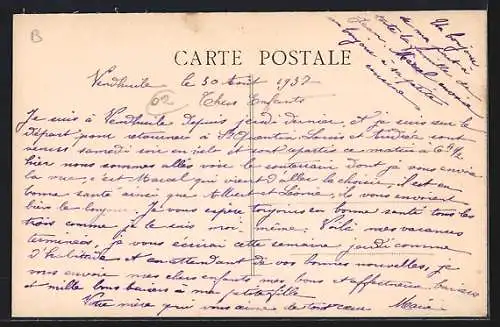 B
CARTE POSTALE
Un bonjour
de ma part à
toute la famille de
Marcel
bonjour à ma petite
Vendhuile le 30 Août 1937
62
Chers Enfants
Je suis à Vendhuile depuis jeudi dernier, et je suis sur le
départ pour retourner à St Quentin Louis et André sont
venus samedi soir en vélo et sont repartis ce matin à 6 h 1/2
hier nous sommes allés voir le souterrain dont je vous envoie
la vue, c'est Marcel qui vient d'aller la choisir, il est en
bonne santé ainsi que Albert et Léonie, ils vous envoient
bien le bonjour. Je vous espère toujours en bonne santé tous les
trois comme je le suis moi-même. Voilà mes vacances
terminées, je vous écrirai cette semaine, jeudi comme
d'habitude et en attendant de vos bonnes nouvelles, je
vous envoie mes chers enfants mes bons et affectueux baisers
et mille bons baisers à ma petite fille
Votre mère qui vous aime de tout cœur Maria